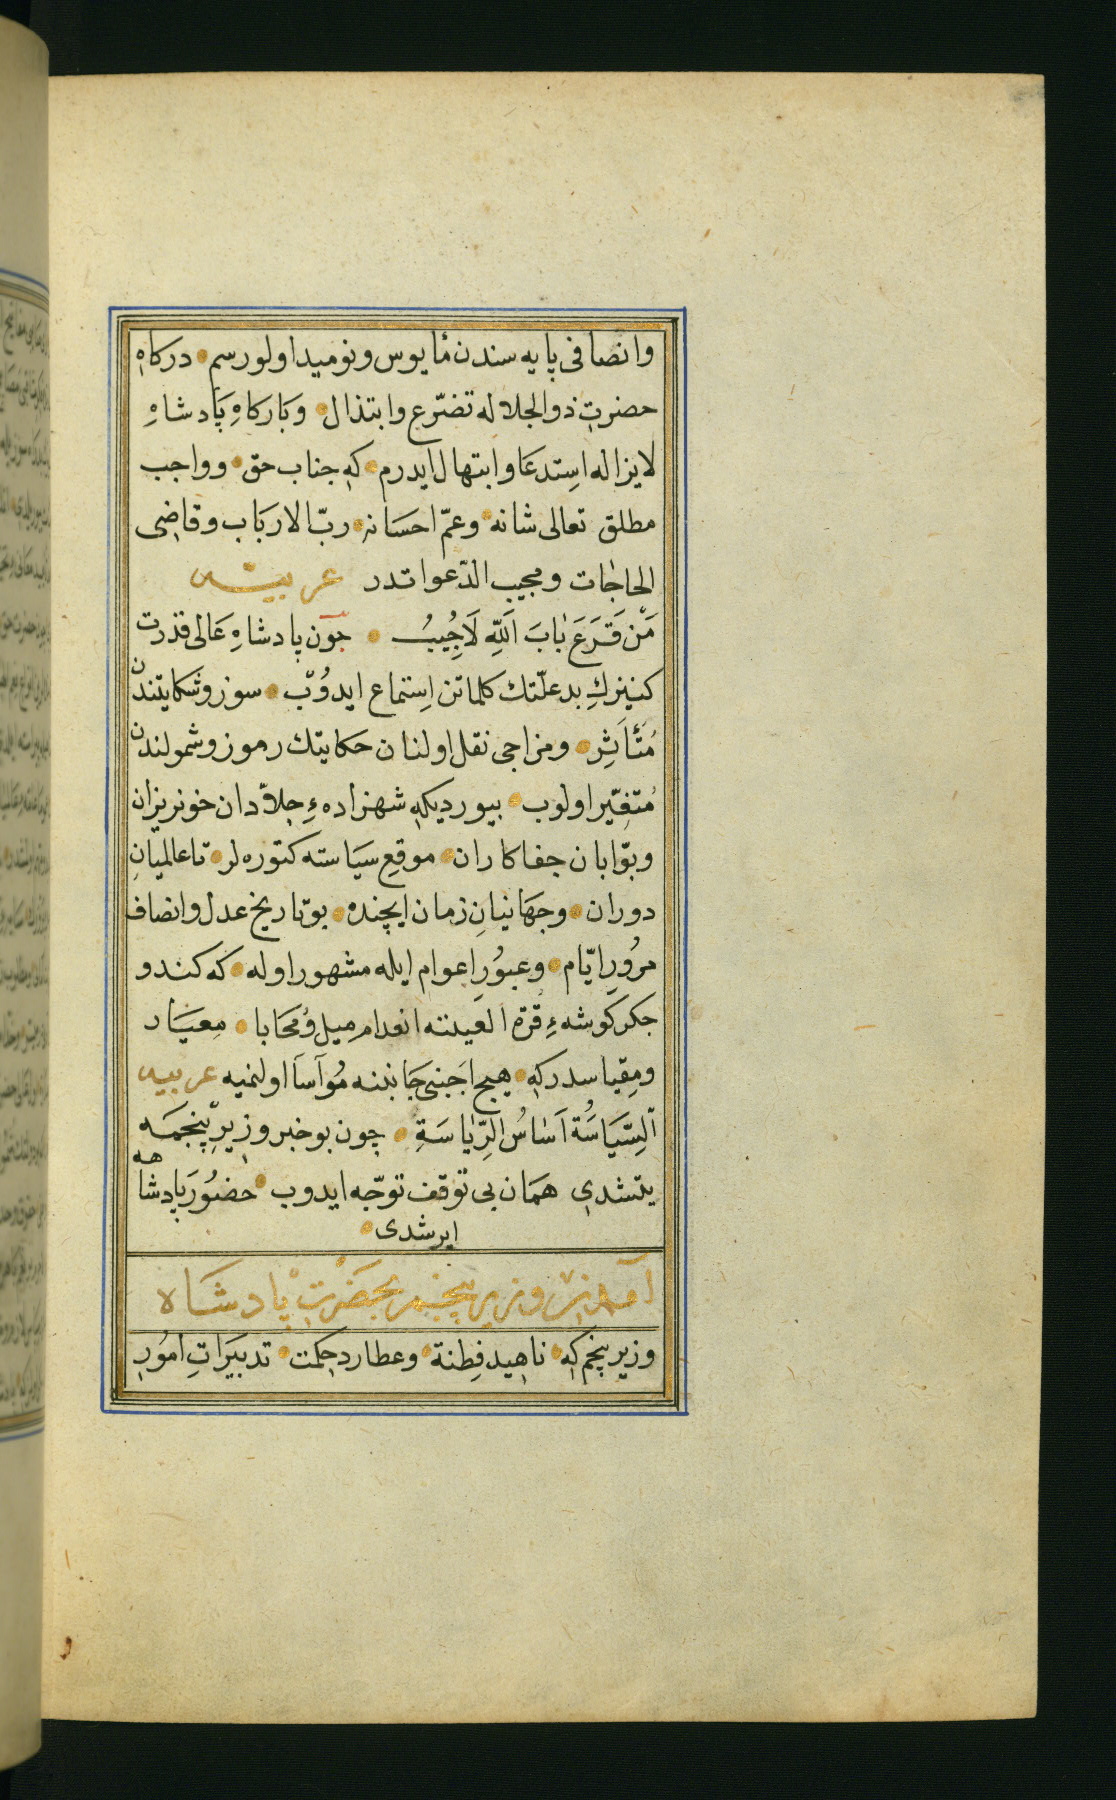 وانصافى پايه سندن مأيوس ونوميد اولورسم • دركاهِ
حضرتِ ذوالجلاله تضرّع وابتذال • وباركاهِ پادشاهِ
لايزاله اِستدعا وابتهال ايدرم • كه جناب حق • وواجب
مطلق تعالى شانه • وعمّ احسانه • ربّ الارباب وقاضى
الحاجات ومجيب الدّعواتدر عربيّه
مَنْ قَرَعَ بَابَ اللّٰهِ لَاجُِيبُ • چون پادشاهِ عالى قدرت
كنيزكِ بدعلّتك كلماتن اِستماع ايدُوب • سوز وشكايتندن
مُتأَثِر • ومزاجى نقل اولنان حكايتك رموز وشمولندن
مُتغِيّر اولوب • بيورديكه شهزادهءِ جلاّدان خونريزان
وبوّابان جفاكاران • موقعِ سياسته كتوره لر • تا عالميانِ
دوران • وجهانيانِ زمان ايچنده • بوتاريخ عدل وانصاف
مرُورِ ايّام • وعبوُرِ اعوام ايله مشهور اوله • كه كندو
جكركوشهءِ قرة العينته انعدام ميل ومُحابا • مِعيار
ومِقياسدركه • هيچ اَجنبى جاننه مُوآسا اولنميه عربيه
اَلسِّيَاسَةُ اَسَاسُ الرِّيَاسَةِ • چون بوخبر وزيرِ پنجمه
يتشدى همان بى توقف توجّه ايدوب • حضوُر پادشاهه
ايرشدى •
آمدن وزير پنجم بحضرتِ پادشاه
وزير پنجم كه • ناهيد فِطنة • وعطارد حِكمت • تدبيراتِ امُورِ